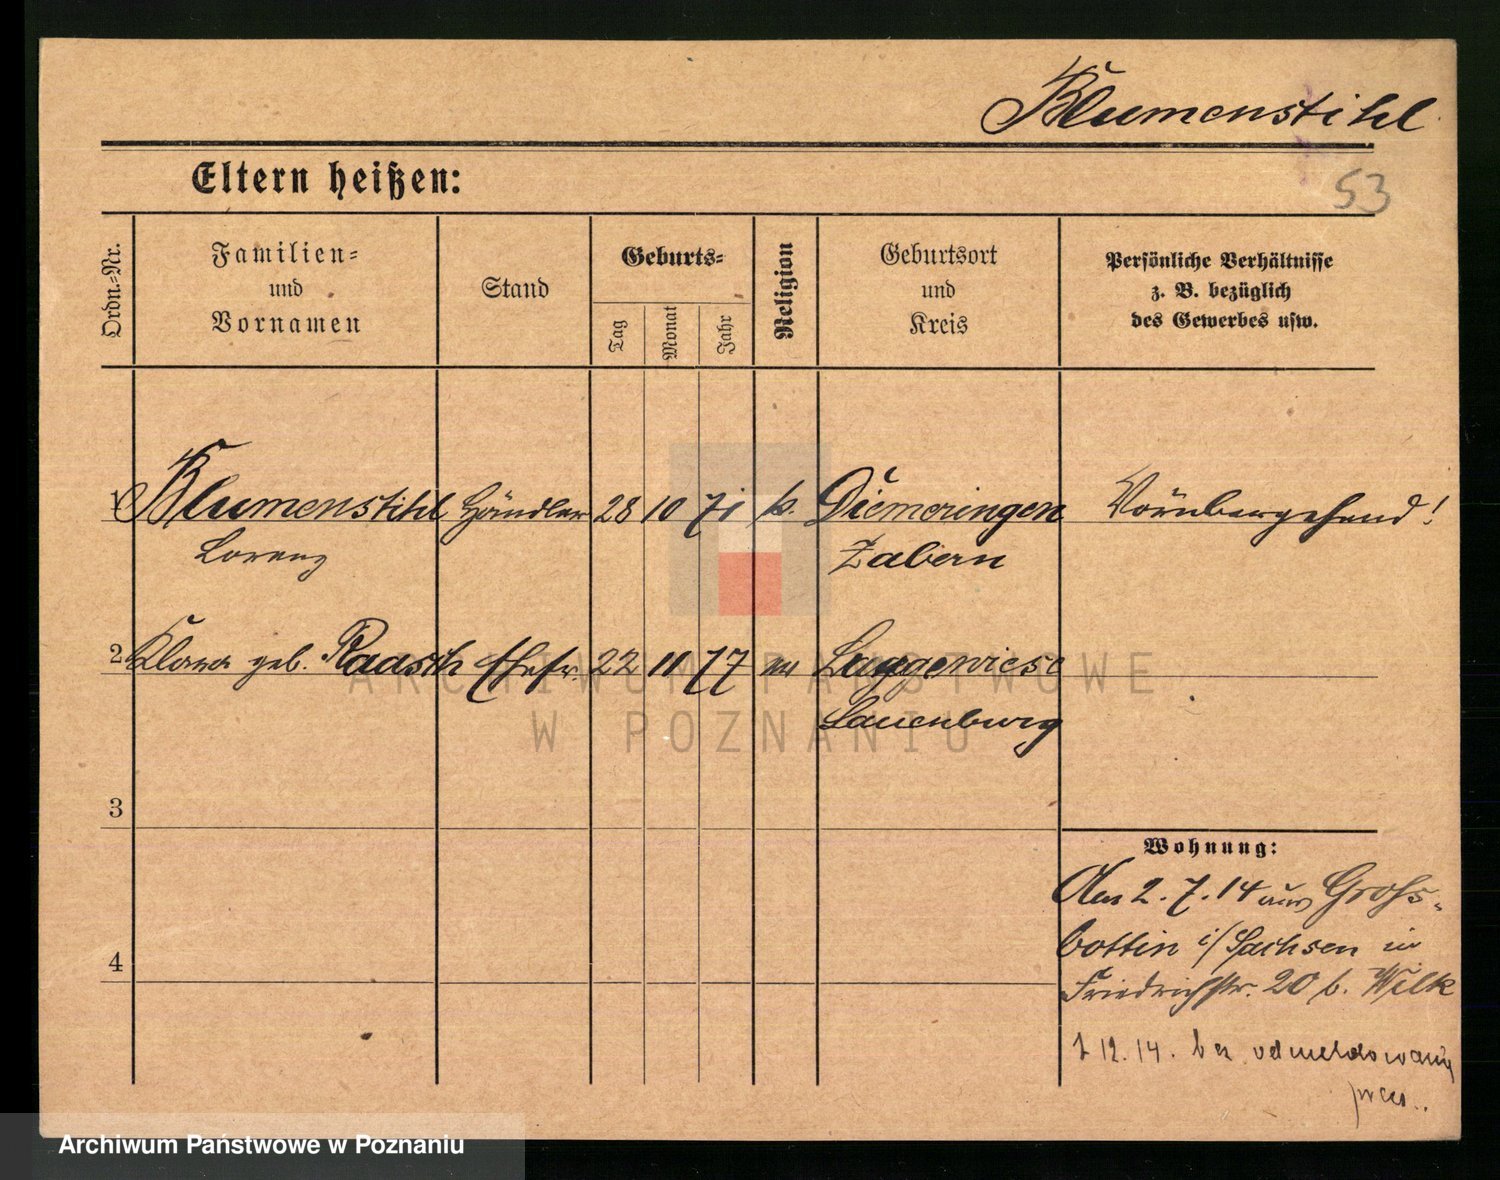 Blumenstihl
53
Eltern heißen:
Ordn.-Nr.
Familien-
und
Vornamen
Stand
Geburts-
Tag
Monat
Jahr
Religion
Geburtsort
und
Kreis
Persönliche Verhältnisse
z. B. bezüglich
des Gewerbes usw.
1 Blumenstihl Händler 28 10 71 k. Diemeringen Vorübergehend!
Lorenz Zabern
2 Klara geb. Raasch Ehefr. 22 11 77 ev Langewiese
Lauenburg
3
Wohnung:
4
Am 2.7.14 aus Gross-
bottin i/Sachsen in
Friedrichstr. 20 b. Wilk
1 12.14. bez odmeldowania
ARCHIWUM PAŃSTWOWE
W POZNANIU
Archiwum Państwowe w Poznaniu